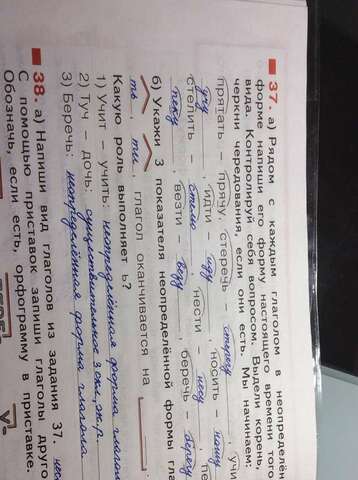 37. а) Рядом с каждым глаголом в неопределён
форме напиши его форму настоящего времени того
вида. Контролируй себя вопросом. Выдели корень,
черкни чередования, если они есть. Мы начинаем:
прятать – прячу, стеречь – стерегу, учи
учу, идти – иду, носить – ношу
стелить – стелю, нести – несу, пе
пеку, везти – везу, беречь – берегу
б) Укажи 3 показателя неопределённой формы гла
ть, ти, глагол оканчивается на
Какую роль выполняет ь?
1) Учит – учить: неопределённая форма глагола
2) Туч – дочь: существительное 3 скл., ж.р.
3) Беречь: неопределённая форма глагола
38. а) Напиши вид глаголов из задания 37.
С помощью приставок запиши глаголы друго
Обозначь, если есть, орфограмму в приставке.